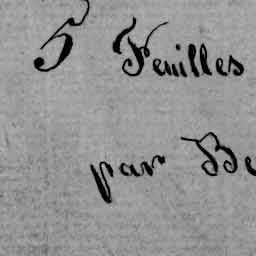 5 Feuilles
par Be